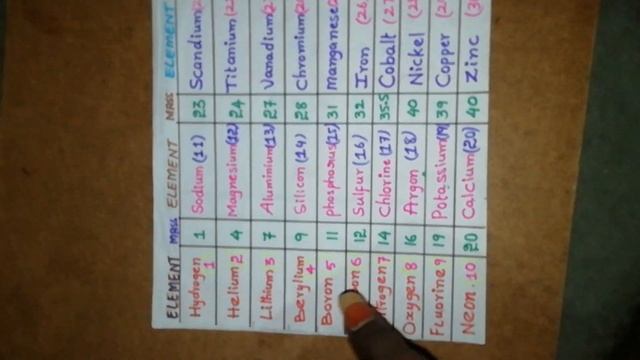 ELEMENT MASS ELEMENT MASS ELEMENT
Hydrogen 1 1 Sodium (11) 23 Scandium
Helium 2 4 Magnesium (12) 24 Titanium
Lithium 3 7 Aluminium (13) 27 Vanadium
Berylium 4 9 Silicon (14) 28 Chromium
Boron 5 11 phosphorus (15) 31 Manganese
6 12 Sulfur (16) 32 Iron (26
7 14 Chlorine (17) 35.5 Cobalt
Oxygen 8 16 Argon (18) 40 Nickel
Fluorine 9 19 Potassium (19) 39 Copper
Neon 10 20 Calcium (20) 40 Zinc